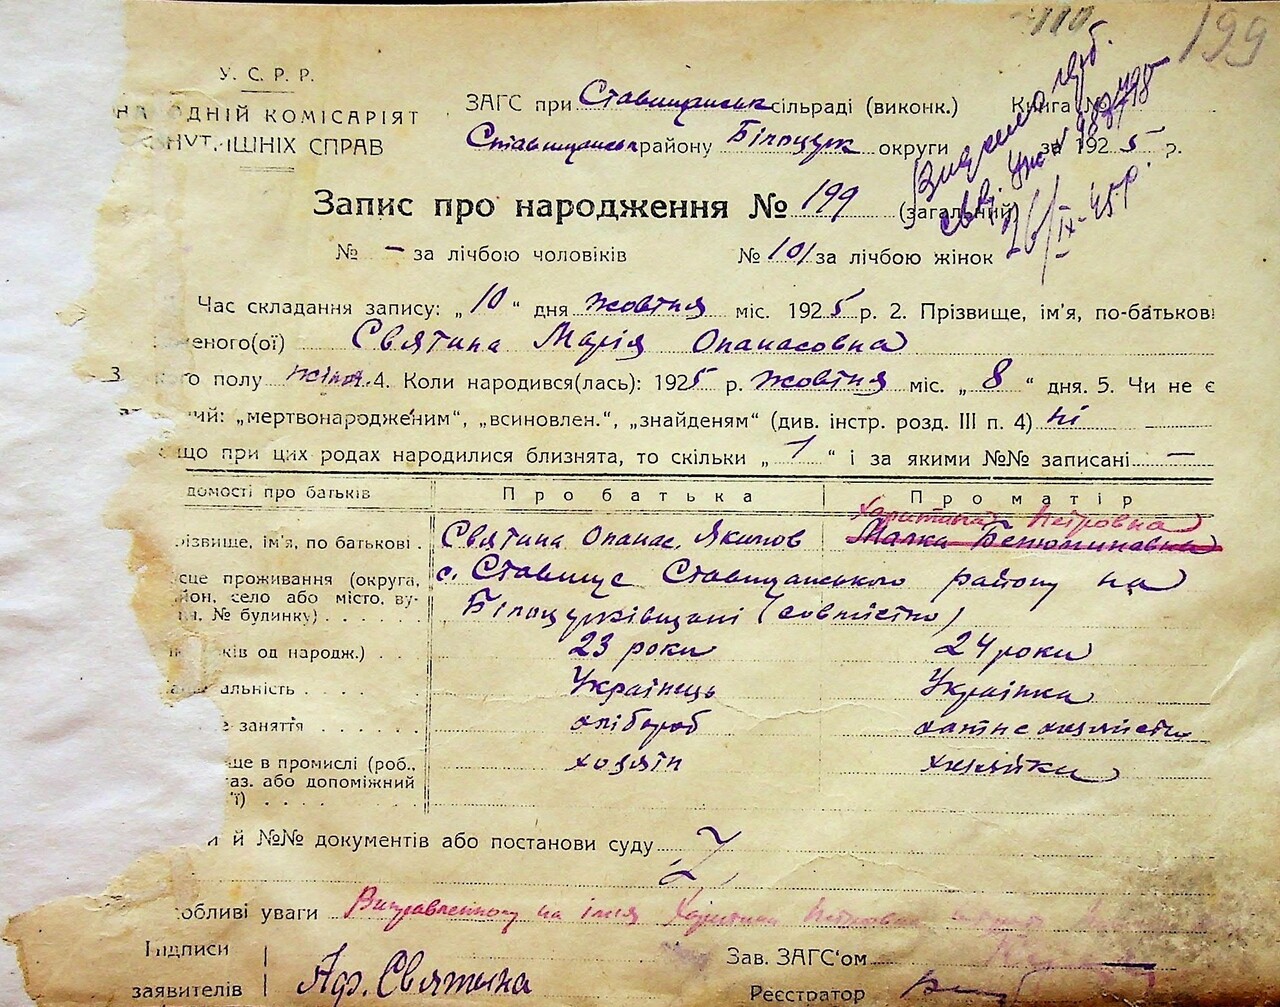 110
199
У. С. Р. Р.
НА ОДНІЙ КОМІСАРІЯТ
НУТ ІШНІХ СПРАВ
ЗАГС при Ставищанськ сільраді (виконк.) Книга №
Ставищанськ району Білоцерк округи за 1925 р.
26/IX-45 р.
Запис про народження № 199 (загальний)
№ — за лічбою чоловіків № 101 за лічбою жінок
Час складання запису: „10“ дня жовтня міс. 1925 р. 2. Прізвище, ім'я, по-батькові
женого(ої) Святина Марія Опанасовна
3 ого полу жіноч. 4. Коли народився(лась): 1925 р. жовтня міс. „8“ дня. 5. Чи не є
ий: „мертвонародженим“, „всиновлен.“, „знайденям“ (див. інстр. розд. III п. 4) ні
що при цих родах народилися близнята, то скільки „1“ і за якими №№ записані —
домості про батьків Про батька Про матір
Харитина Петровна
різвище, ім'я, по батькові . Святина Опанас. Якимов
сце проживання (округа, с. Ставище Ставищанського району на
йон, село або місто, ву-
№ будинку) . . . . . . Білоцерківщані (совмістно)
ків од народж.) . . . 23 роки 24 роки
альність . . . . . Українець Українка
е заняття . . . . . хлібороб хатнє хазяйство
ще в промислі (роб., хозяїн хазяйка
газ. або допоміжний
ї) . . . .
и й №№ документів або постанови суду
обливі уваги Виправленному на імя Харитина Петровна
Підписи Зав. ЗАГС'ом
заявителів Аф. Святына Реєстратор